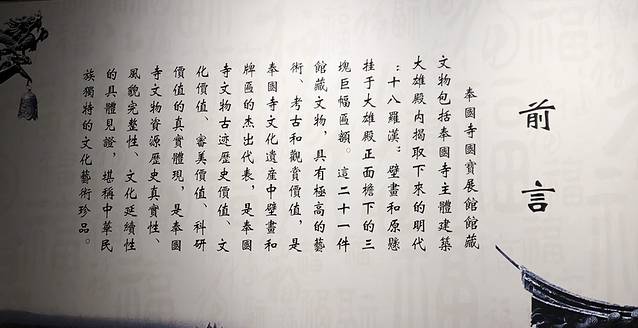 前言
奉國寺國寶展館館藏
文物包括奉國寺主體建築
大雄殿内揭取下來的明代
：十八羅漢：壁畫和原懸
挂于大雄殿正面檐下的三
塊巨幅匾額。這二十一件
館藏文物，具有極高的藝
術、考古和觀賞價值，是
奉國寺文化遺産中壁畫和
牌匾的杰出代表，是奉國
寺文物古迹歷史價值、文
化價值、審美價值、科研
價值的真實體現，是奉國
寺文物資源歷史真實性、
風貌完整性、文化延續性
的具體見證，堪稱中華民
族獨特的文化藝術珍品。